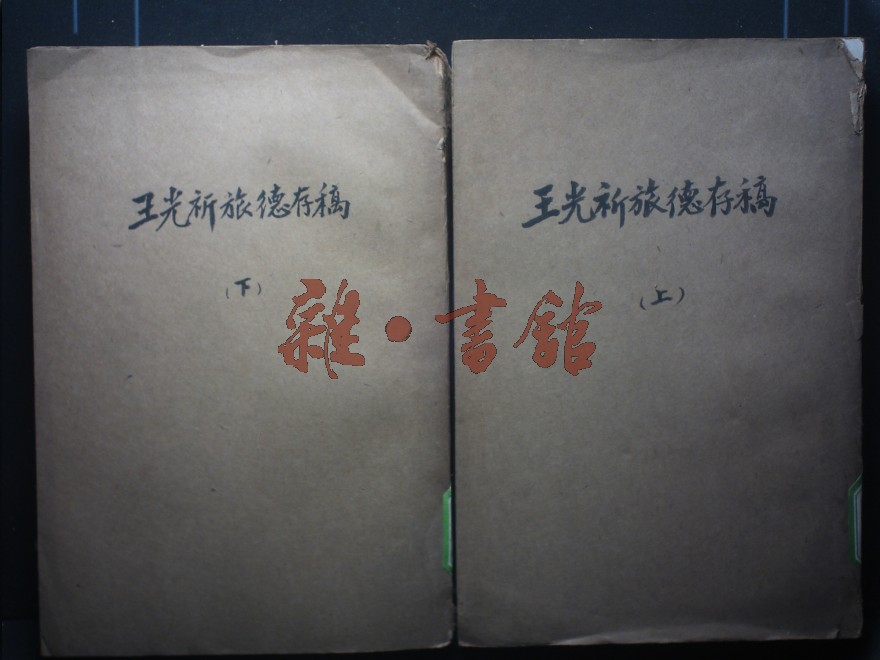 王光祈旅德存稿
(下)
王光祈旅德存稿
(上)
雜·書館